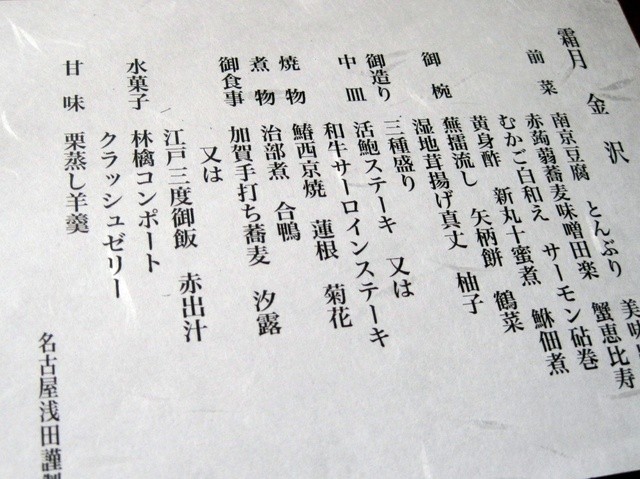 霜月 金沢
前菜 南京豆腐 とんぶり 美味
赤蒟蒻蕎麦味噌田楽 蟹恵比寿
むかご白和え サーモン砧巻
黄身酢 新丸十蜜煮 鮴佃煮
御椀 蕪擂流し 矢柄餅 鶴菜
湿地茸揚げ真丈 柚子
御造り 三種盛り
中皿 活鮑ステーキ 又は
和牛サーロインステーキ
焼物 鰆西京焼 蓮根 菊花
煮物 治部煮 合鴨
御食事 加賀手打ち蕎麦 汐露
又は
江戸三度御飯 赤出汁
水菓子 林檎コンポート
クラッシュゼリー
甘味 栗蒸し羊羹
名古屋浅田謹製